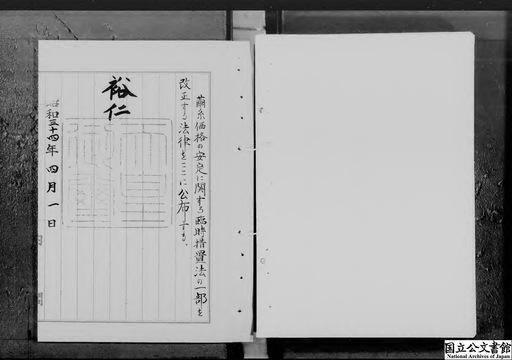 繭糸価格の安定に関する臨時措置法の一部を
改正する法律をここに公布する。
裕仁
昭和三十四年四月一日
国立公文書館
National Archives of Japan